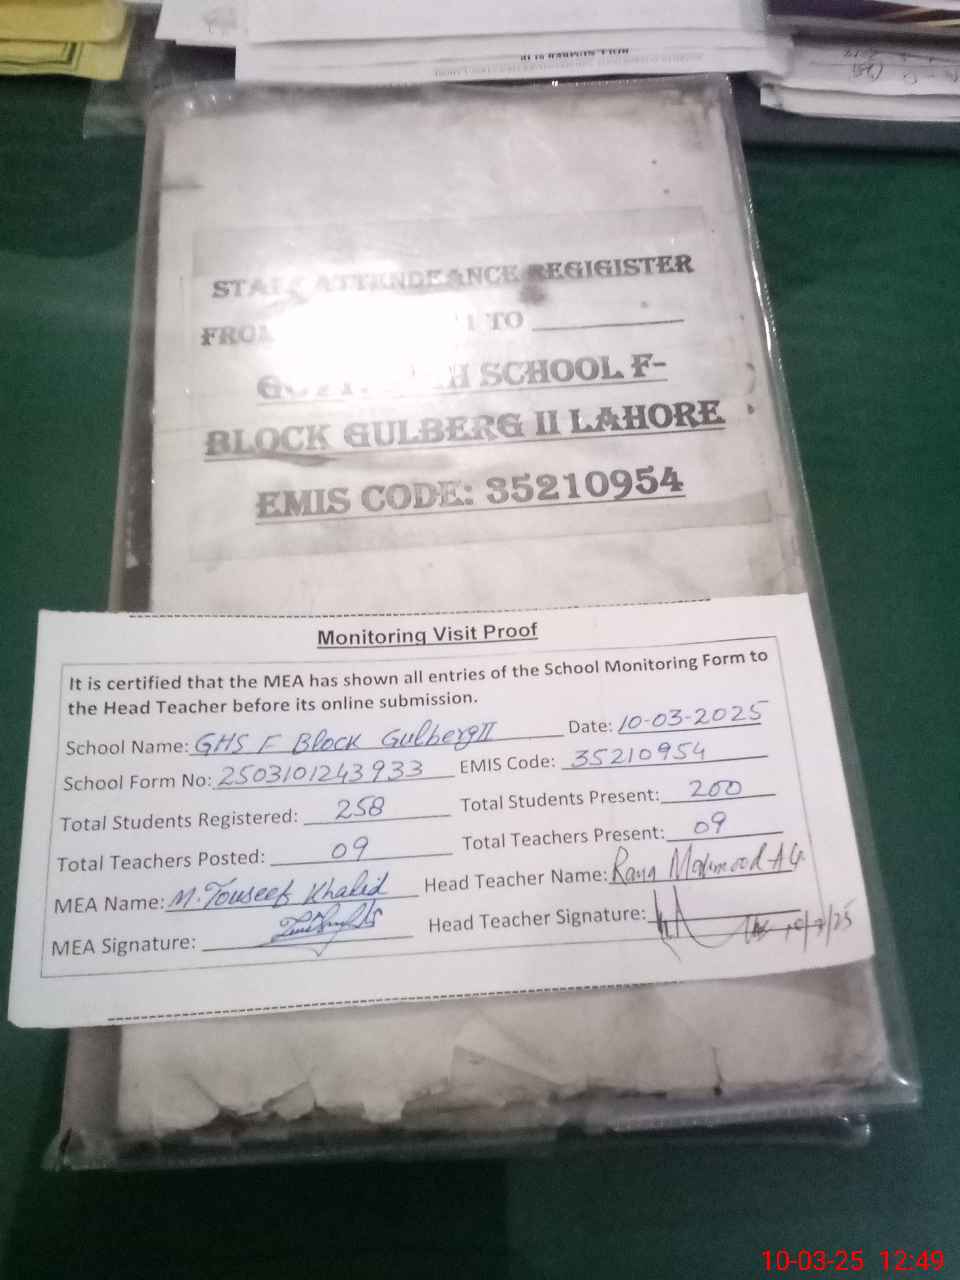 ATTENDEANCE REGIGISTER
TO
SCHOOL F-
BLOCK GULBERG II LAHORE
EMIS CODE: 35210954
Monitoring Visit Proof
It is certified that the MEA has shown all entries of the School Monitoring Form to
the Head Teacher before its online submission.
School Name: GHS F Block Gulberg II Date: 10-03-2025
School Form No: 2503101243933 EMIS Code: 35210954
Total Students Registered: 258 Total Students Present: 200
Total Teachers Posted: 09 Total Teachers Present: 09
MEA Name: M. Touseef Khalid Head Teacher Name: Mahmood
MEA Signature: Head Teacher Signature:
10-03-25 12:49